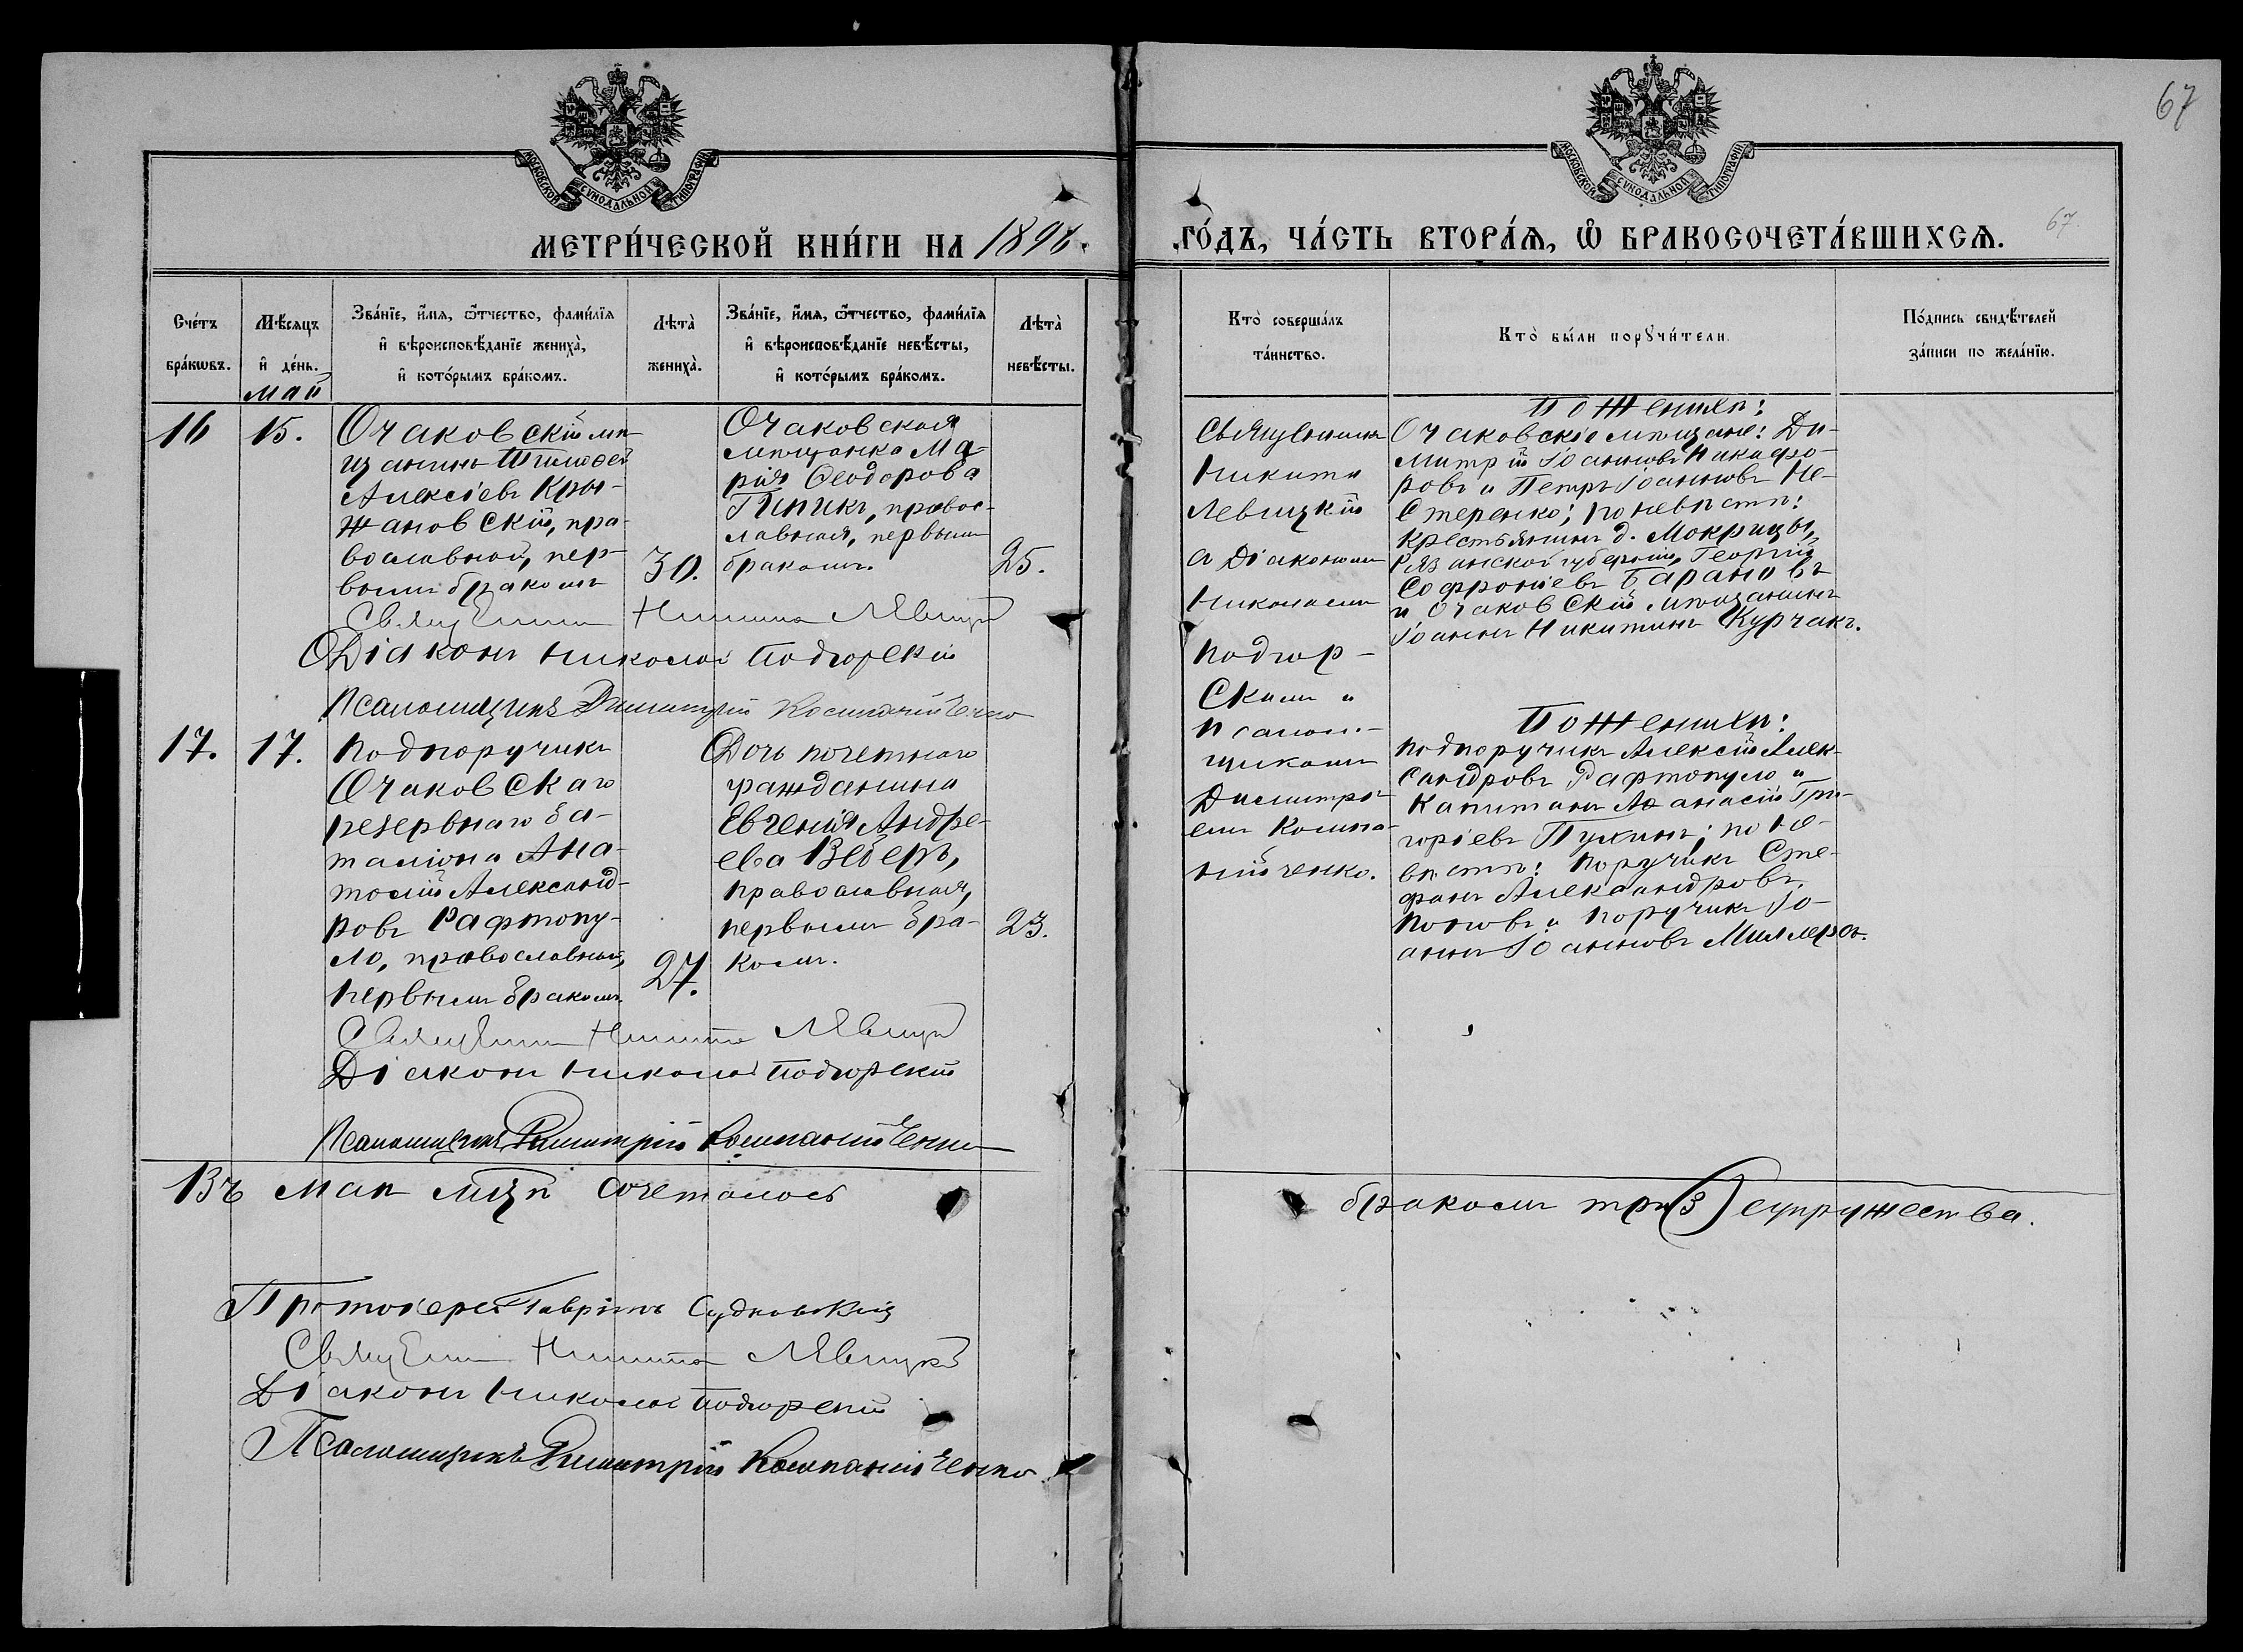 67
МОСКОВСКОЙ СУНОДАЛЬНОЙ ТИПОГРАФІИ
МОСКОВСКОЙ СУНОДАЛЬНОЙ ТИПОГРАФІИ
МЕТРИ́ЧЕСКОЙ КНИ́ГИ НА 189
ГО́ДЪ, ЧА́СТЬ ВТОРА́Я, Ѽ БРАКОСОЧЕТА́ВШИХСЯ.
67.
Сче́тъ бра́кѡвъ.
Мѣ́сяцъ и҆ де́нь.
Зва́нїе, и҆́мя, ѻ҆́тчество, фами́лїя и҆ вѣроисповѣ́данїе жениха̀, и҆ кото́рымъ бра́комъ.
Лѣта̀ жениха̀.
Зва́нїе, и҆́мя, ѻ҆́тчество, фами́лїя и҆ вѣроисповѣ́данїе невѣ́сты, и҆ кото́рымъ бра́комъ.
Лѣта̀ невѣ́сты.
Кто̀ соверша́лъ та́инство.
Кто̀ бы́ли порꙋчи́тели.
По́дпись свидѣ́телей за́писи по жела́нїю.
Май
16
15.
Очаковскій мѣ-
щанинъ Тимоѳей
Алексіевъ Кры-
жановскій, пра-
вославный, пер-
вымъ бракомъ
30.
Очаковская
мѣщанка Ма-
рія Ѳеодорова
Пипикъ, правос-
лавная, первымъ
бракомъ.
25.
Священникъ Никита Левицкій
Діаконъ Николай Подгорскій
Псаломщикъ Димитрій Компанійченко
Священникъ
Никита
Левицкій
съ Діакономъ
Николаемъ
Подгор-
скимъ и
псалом-
щикомъ
Димитрі-
емъ Компа-
нійченко.
По женихѣ:
Очаковскіе мѣщане: Ди-
митрій Іоанновъ Никифо-
ровъ и Петръ Іоанновъ Не-
стеренко; по невѣстѣ:
крестьянинъ д. Мокрицы,
Рязанской губерніи, Георгій
Софроніевъ Барановъ
и Очаковскій мѣщанинъ
Іоаннъ Никитинъ Курчакъ.
17.
17.
Подпоручикъ
Очаковскаго
резервнаго ба-
таліона Ана-
толій Александ-
ровъ Рафтопу-
ло, православный,
первымъ бракомъ.
27.
Дочь почетнаго
гражданина
Евгенія Андре-
ева Веберъ,
православная,
первымъ бра-
комъ.
23.
По женихѣ:
Подпоручикъ Алексій Алек-
сандровъ Рафтопуло и
Капитанъ Аѳанасій Гри-
горіевъ Пухинъ; по не-
вѣстѣ: Поручикъ Сте-
фанъ Александровъ
Поповъ и поручикъ Іо-
аннъ Іоанновъ Миллеръ.
Священникъ Никита Левицкій
Діаконъ Николай Подгорскій
Псаломщикъ Димитрій Компанійченко
Въ маѣ мцѣ сочеталось
бракомъ три (3) супружества.
Протоіерей Гавріилъ Судковскій
Священникъ Никита Левицкій
Діаконъ Николай Подгорскій
Псаломщикъ Димитрій Компанійченко